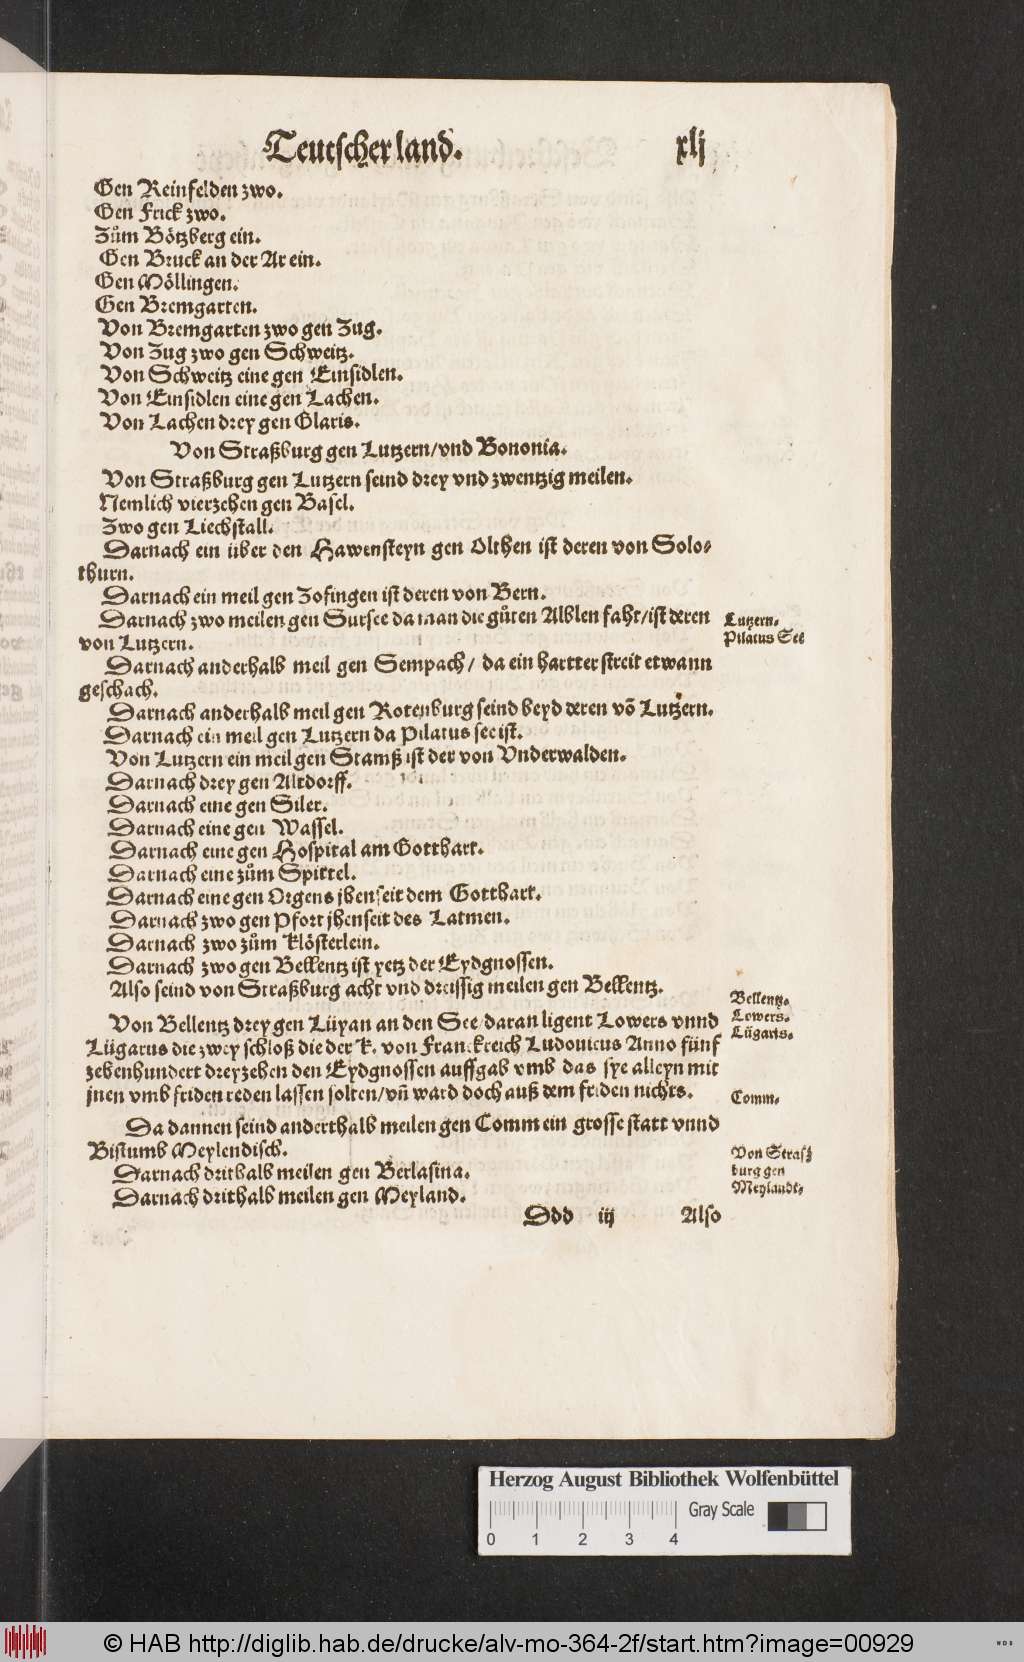 Teutscher land. xlj
Gen Reinfelden zwo.
Gen Frick zwo.
Zům Bötzberg ein.
Gen Bruck an der Ar ein.
Gen Möllingen.
Gen Bremgarten.
Von Bremgarten zwo gen Zug.
Von Zug zwo gen Schweitz.
Von Schweitz eine gen Einsidlen.
Von Einsidlen eine gen Lachen.
Von Lachen drey gen Glaris.
Von Straßburg gen Lutzern/vnd Bononia.
Von Straßburg gen Lutzern seind drey vnd zwentzig meilen.
Nemlich vierzehen gen Basel.
Zwo gen Liechstall.
Darnach ein über den Hawensteyn gen Olthen ist deren von Solo-
thurn.
Darnach ein meil gen Zofingen ist deren von Bern.
Darnach zwo meilen gen Sursee da man die gůten Alblen faht/ist deren
von Lutzern.
Lutzern.
Pilatus See
Darnach anderhalb meil gen Sempach/ da ein hartter streit etwann
geschach.
Darnach anderhalb meil gen Rotenburg seind beyd deren võ Lutzern.
Darnach ein meil gen Lutzern da Pilatus see ist.
Von Lutzern ein meil gen Stamß ist der von Vnderwalden.
Darnach drey gen Altdorff.
Darnach eine gen Siler.
Darnach eine gen Wassel.
Darnach eine gen Hospital am Gotthart.
Darnach eine zům Spittel.
Darnach eine gen Orgens jhenseit dem Gotthart.
Darnach zwo gen Pfort jhenseit des Latmen.
Darnach zwo zům Klösterlein.
Darnach zwo gen Bellentz ist yetz der Eydgnossen.
Also seind von Straßburg acht vnd dreissig meilen gen Bellentz.
Bellentz.
Lowers.
Lügaris.
Von Bellentz drey gen Lüyan an den See/daran ligent Lowers vnnd
Lügarus die zwey schloß die der K. von Franckreich Ludouicus Anno fünf
zehenhundert dreyzehen den Eydgnossen auffgab vmb das sye alleyn mit
jnen vmb friden reden lassen solten/vñ ward doch auß dem friden nichts.
Comm.
Da dannen seind anderthalb meilen gen Comm ein grosse statt vnnd
Bistumb Meylendisch.
Von Straß
burg gen
Meylandt.
Darnach drithalb meilen gen Berlasina.
Darnach drithalb meilen gen Meyland.
Ddd iij Also
Herzog August Bibliothek Wolfenbüttel
Gray Scale
0 1 2 3 4
© HAB http://diglib.hab.de/drucke/alv-mo-364-2f/start.htm?image=00929